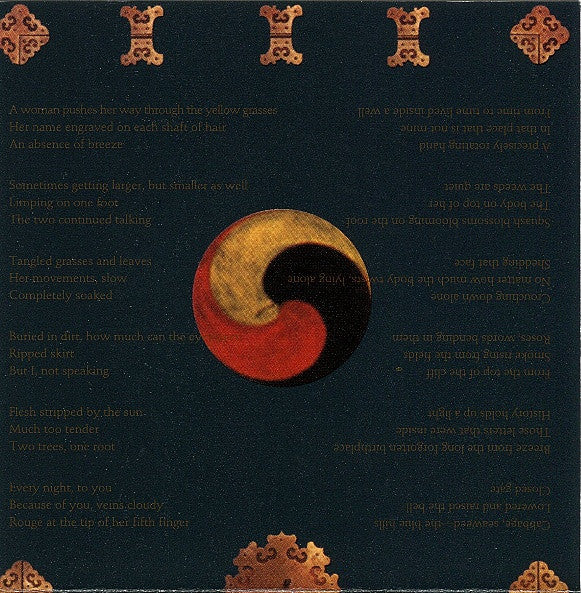 A woman pushes her way through the yellow grasses
Her name engraved on each shaft of hair
An absence of breeze
Sometimes getting larger, but smaller as well
Limping on one foot
The two continued talking
Tangled grasses and leaves
Her movements, slow
Completely soaked
Buried in dirt, how much can the
Ripped skirt
But I, not speaking
Flesh stripped by the sun
Much too tender
Two trees, one root
Every night, to you
Because of you, veins cloudy
Rouge at the tip of her fifth finger
Cabbage, seaweed - the blue hills
Lowered and raised the bell
Closed gate
Breeze from the long forgotten birthplace
Those letters that were inside
History holds up a light
From the top of the cliff
Smoke rising from the fields
Roses, words bending in them
Crouching down alone
No matter how much the body twists, lying alone
Shedding that face
Squash blossoms blooming on the
The body on top of her
The weeds are quiet
A precisely rotating hand
In that place that is not mine
From time to time lived inside a well